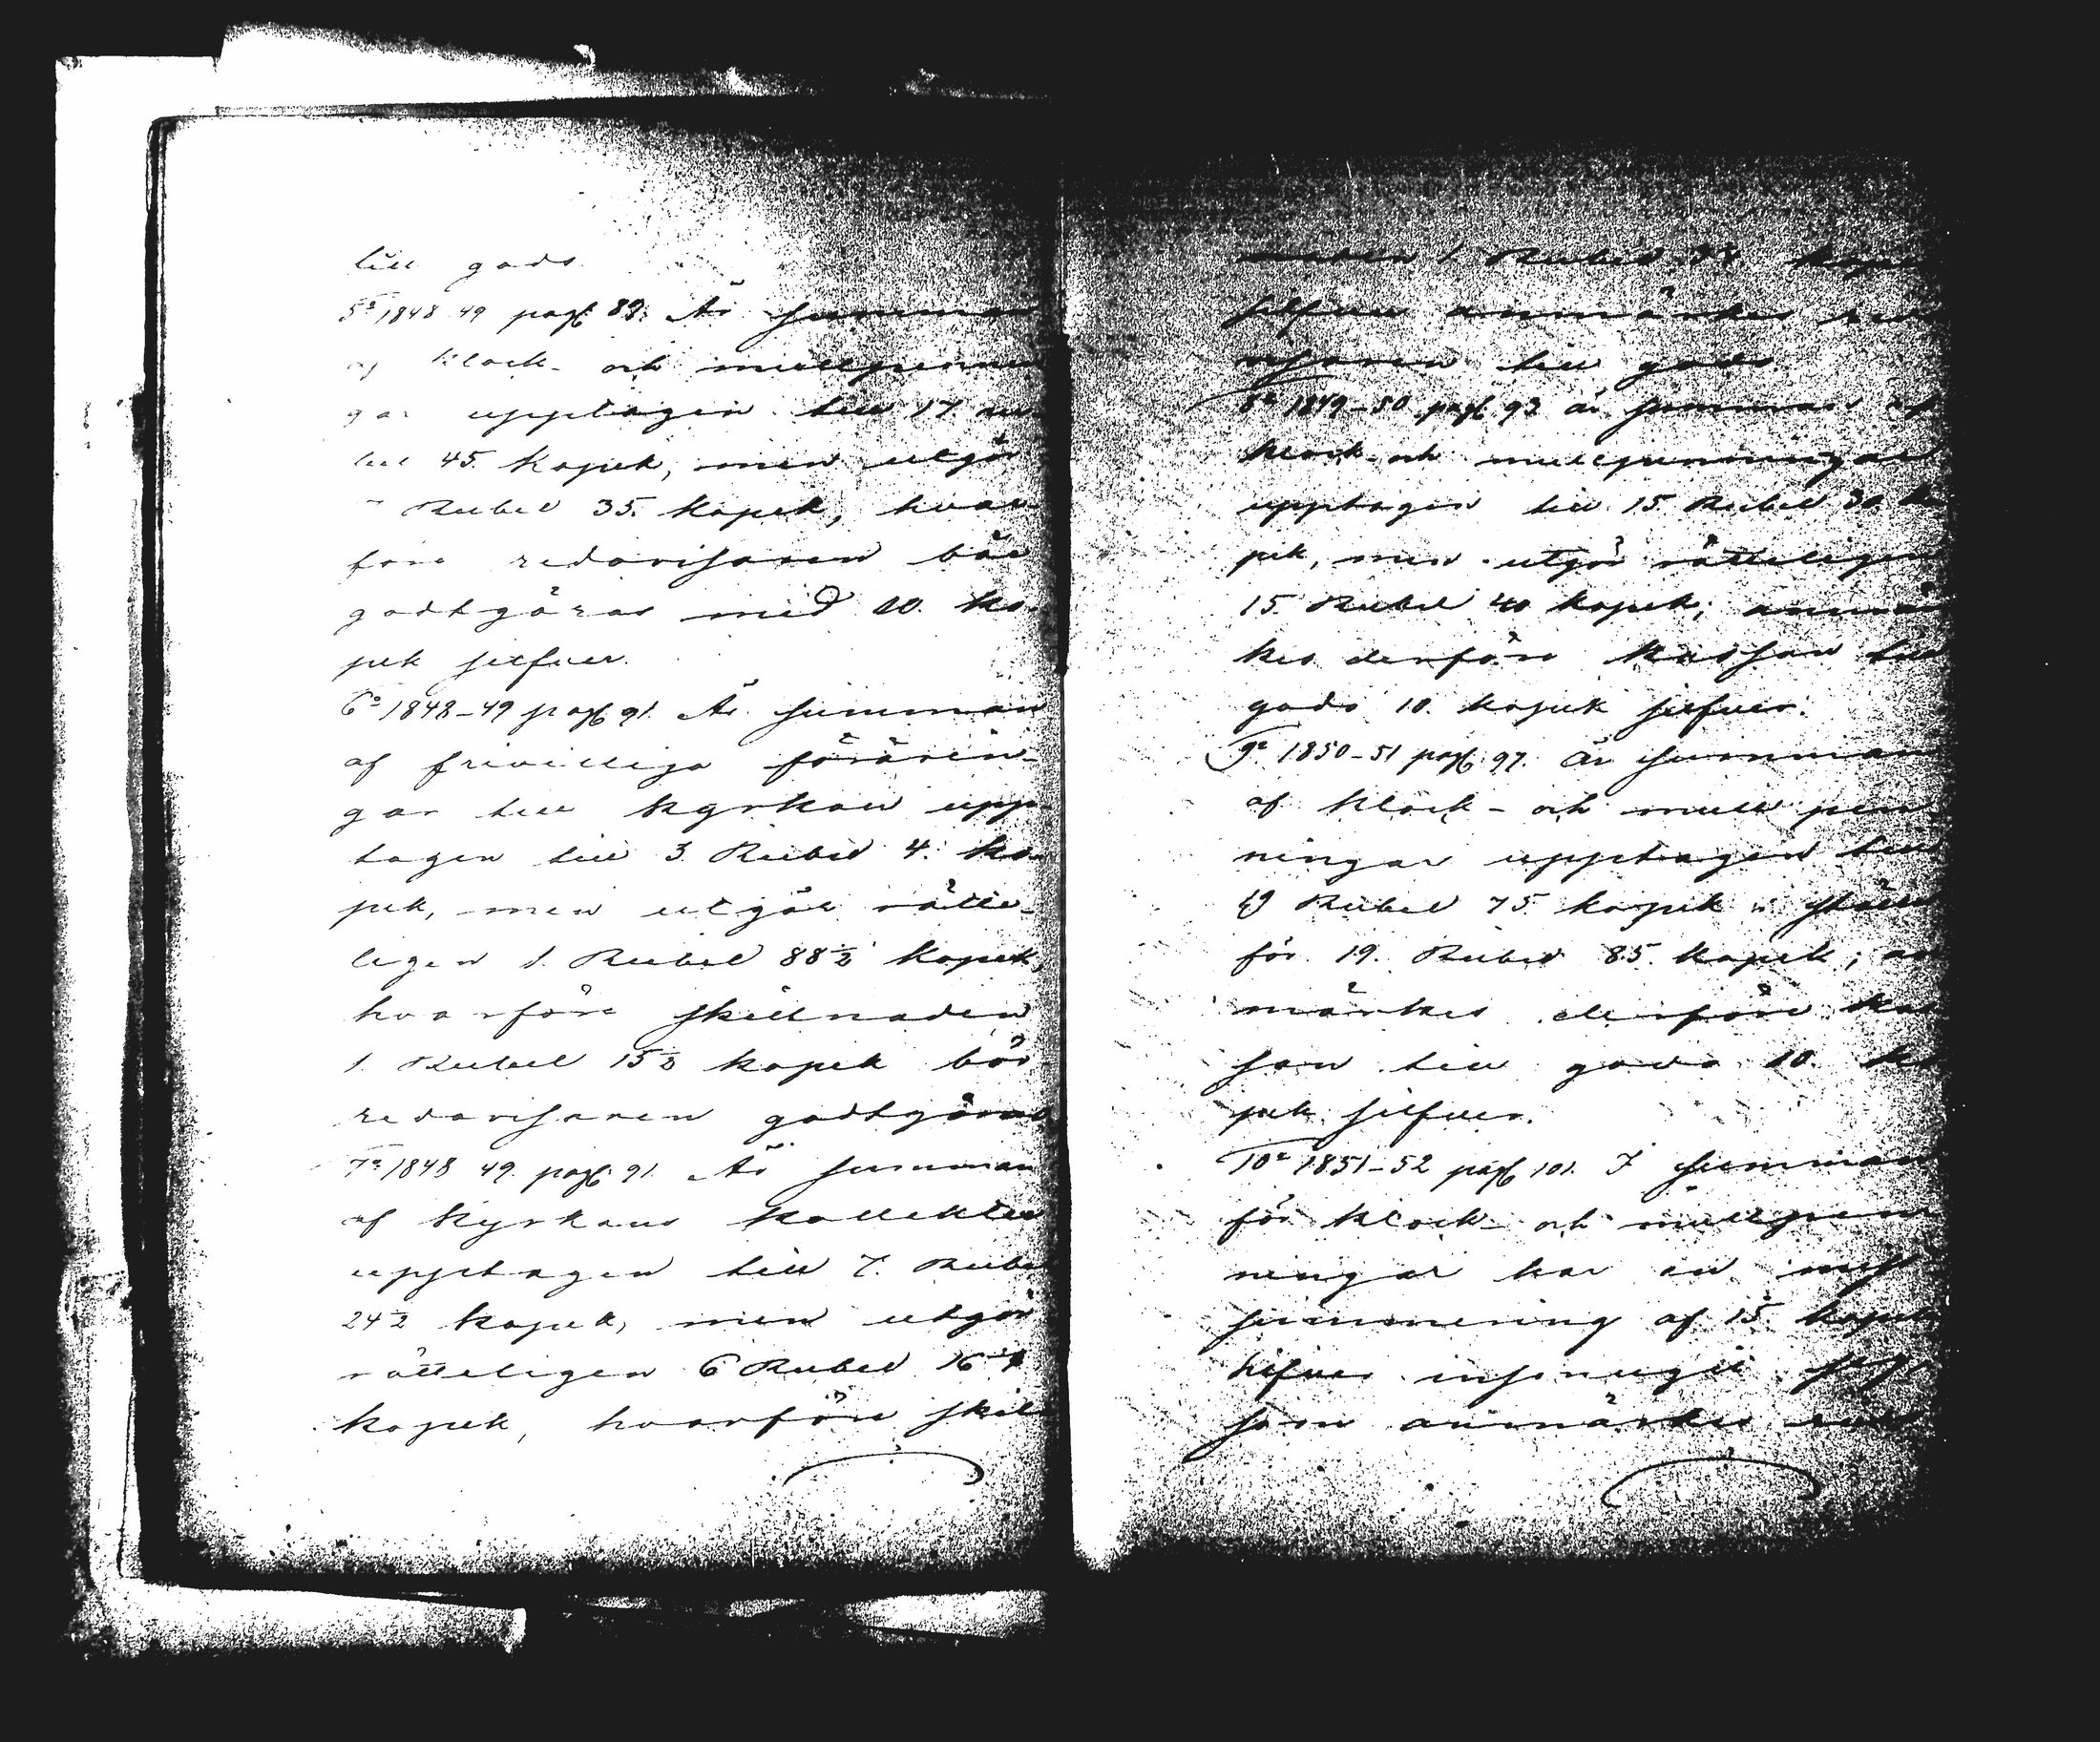 till godo
5:o 1848 49 pag: 89: Är summan
af klock- och mullpennin
gar upptagen till 17. ru-
bel 45. kopek, men utgör
Rubel 35. kopek, hvar-
före redovisaren bör
godtgöras med 10. ko-
pek silfver.
6:o 1848-49 pag: 91. Är summan
af frivilliga förärin-
gar till kyrkan upp-
tagen till 3. Rubel 4. ko-
pek, men utgör rätte-
ligen 1. Rubel 88 1/2 kopek,
hvarföre skillnaden
1. Rubel 15 1/2 kopek bör
redovisaren godtgöras
7:o 1848 49. pag: 91. Är summan
af kyrkans kollekter
upptagen till 7. Rubel
24 1/2 kopek, men utgör
rätteligen 6 Rubel 16
kopek, hvarföre skil
naden 1. Rubel kopek
silfver anmärkes redo
visaren till godo.
8:o 1849-50 pag: 93 är summan af
klock- och mullpenningar
upptagen till 15. Rubel 30. ko
pek, men utgör rätteligen
15. Rubel 40 kopek; anmär
kes derföre kassan till
godo 10. kopek silfver.
9:o 1850-51 pag: 97. är summan
af klock- och mull pen
ningar upptagen till
19 Rubel 75. kopek i ställe
för 19. Rubel 85. kopek; an
märkes derföre kas
san till godo 10. ko
pek silfver.
10:o 1851-52 pag: 101. I summan
för klock- och mullpen
ningar har en mis
summering af 15 kopek
silfver insmugit sig,
som anmärkes